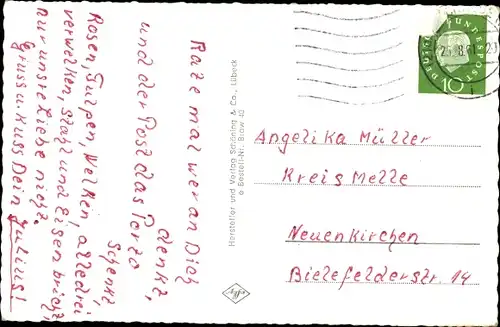 Rate mal wer an Dich
denkt,
und der Post das Porto
schenkt
Rosen, Tulpen, Nelken, alle drei
verwelken, Stahl und Eisen bricht,
nur unsre Liebe nicht.
Gruss u. Kuss Dein Julius!
Hersteller und Verlag Schöning & Co., Lübeck
Bestell-Nr. Braw 40
DEUTSCHE BUNDESPOST
10
Angelika Müller
Kreis Melle
Neuenkirchen
Bielefelderstr. 14